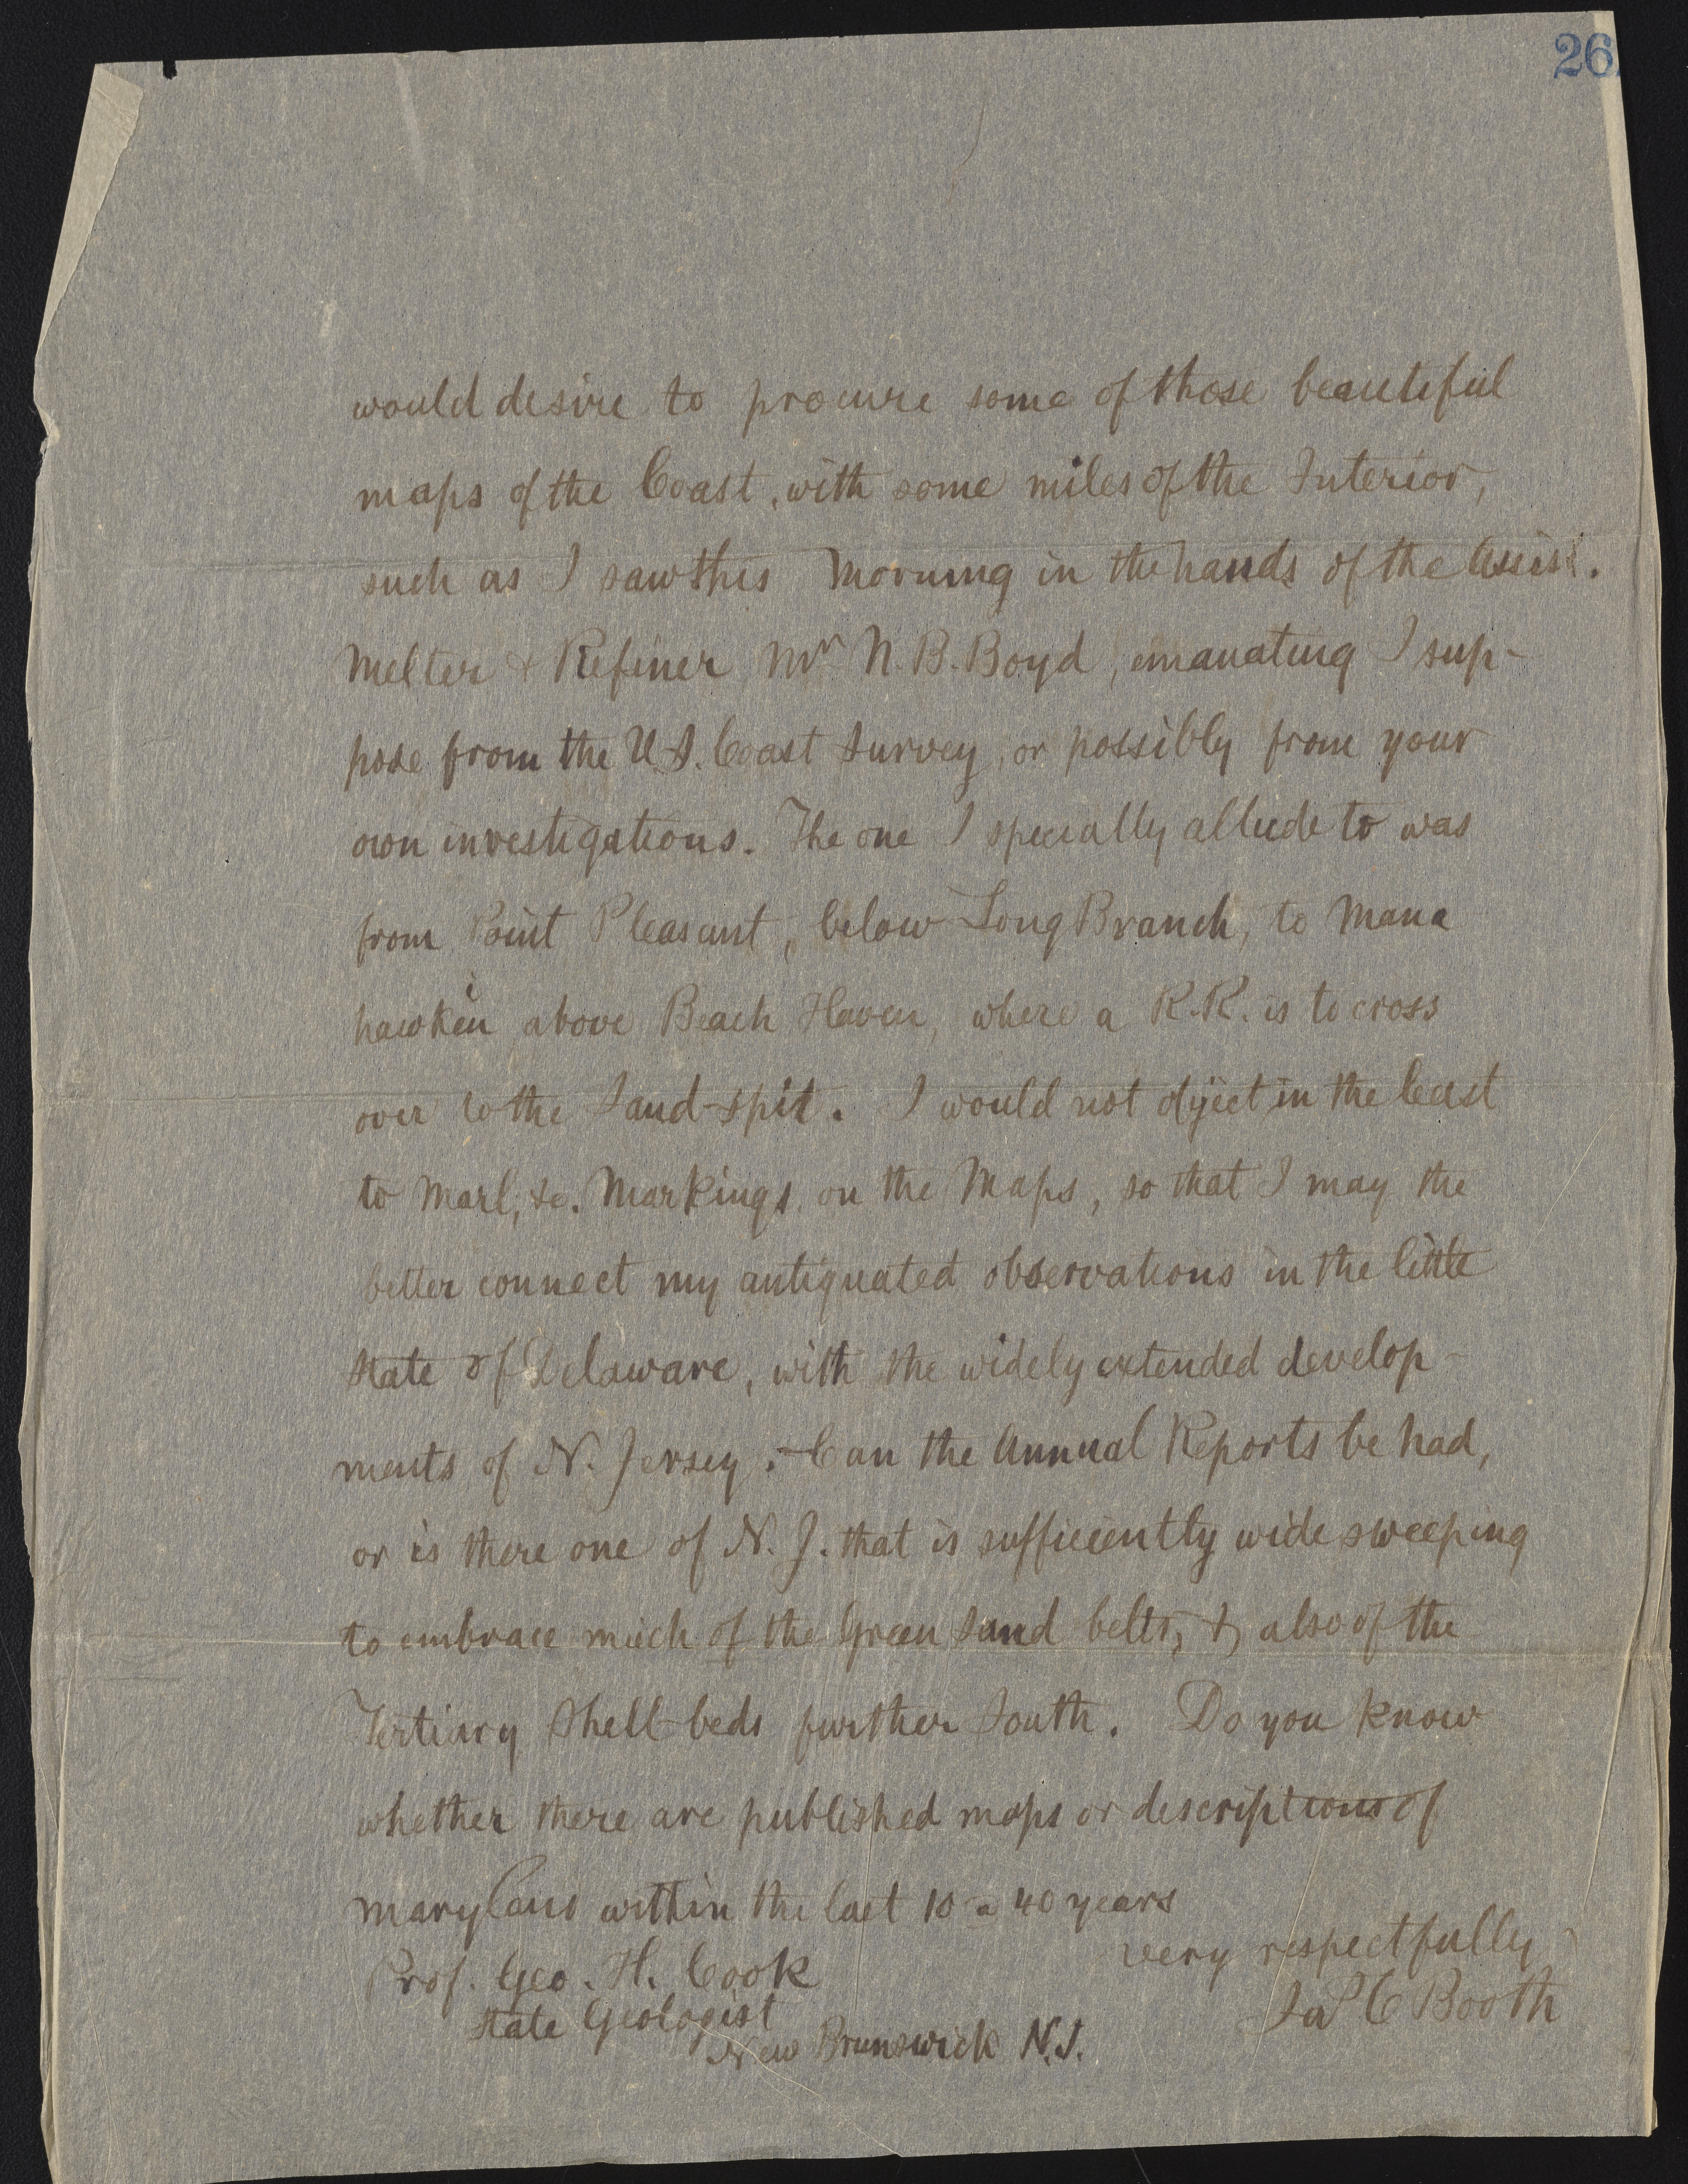 26
would desire to procure some of those beautiful
maps of the Coast, with some miles of the Interior,
such as I saw this Morning in the hands of the Assist.
Melter & Refiner Mr N. B. Boyd, emanating I sup-
pose from the U.S. Coast Survey, or possibly from your
own investigations. The one I specially allude to was
from Point Pleasant, below Long Branch, to Mana
hawkin above Beach Haven, where a R.R. is to cross
over to the Sand-spit. I would not object in the least
to Marl, &c. Markings on the Maps, so that I may the
better connect my antiquated observations in the little
State of Delaware, with the widely extended develop-
ments of N. Jersey. Can the Annual Reports be had,
or is there one of N. J. that is sufficiently wide sweeping
to embrace much of the Green Sand belts, & also of the
Tertiary Shell-beds further South. Do you know
whether there are published maps or descriptions of
Maryland within the last 10 a 40 years
very respectfully
Jas C Booth
Prof. Geo. H. Cook
State Geologist
New Brunswick N.J.